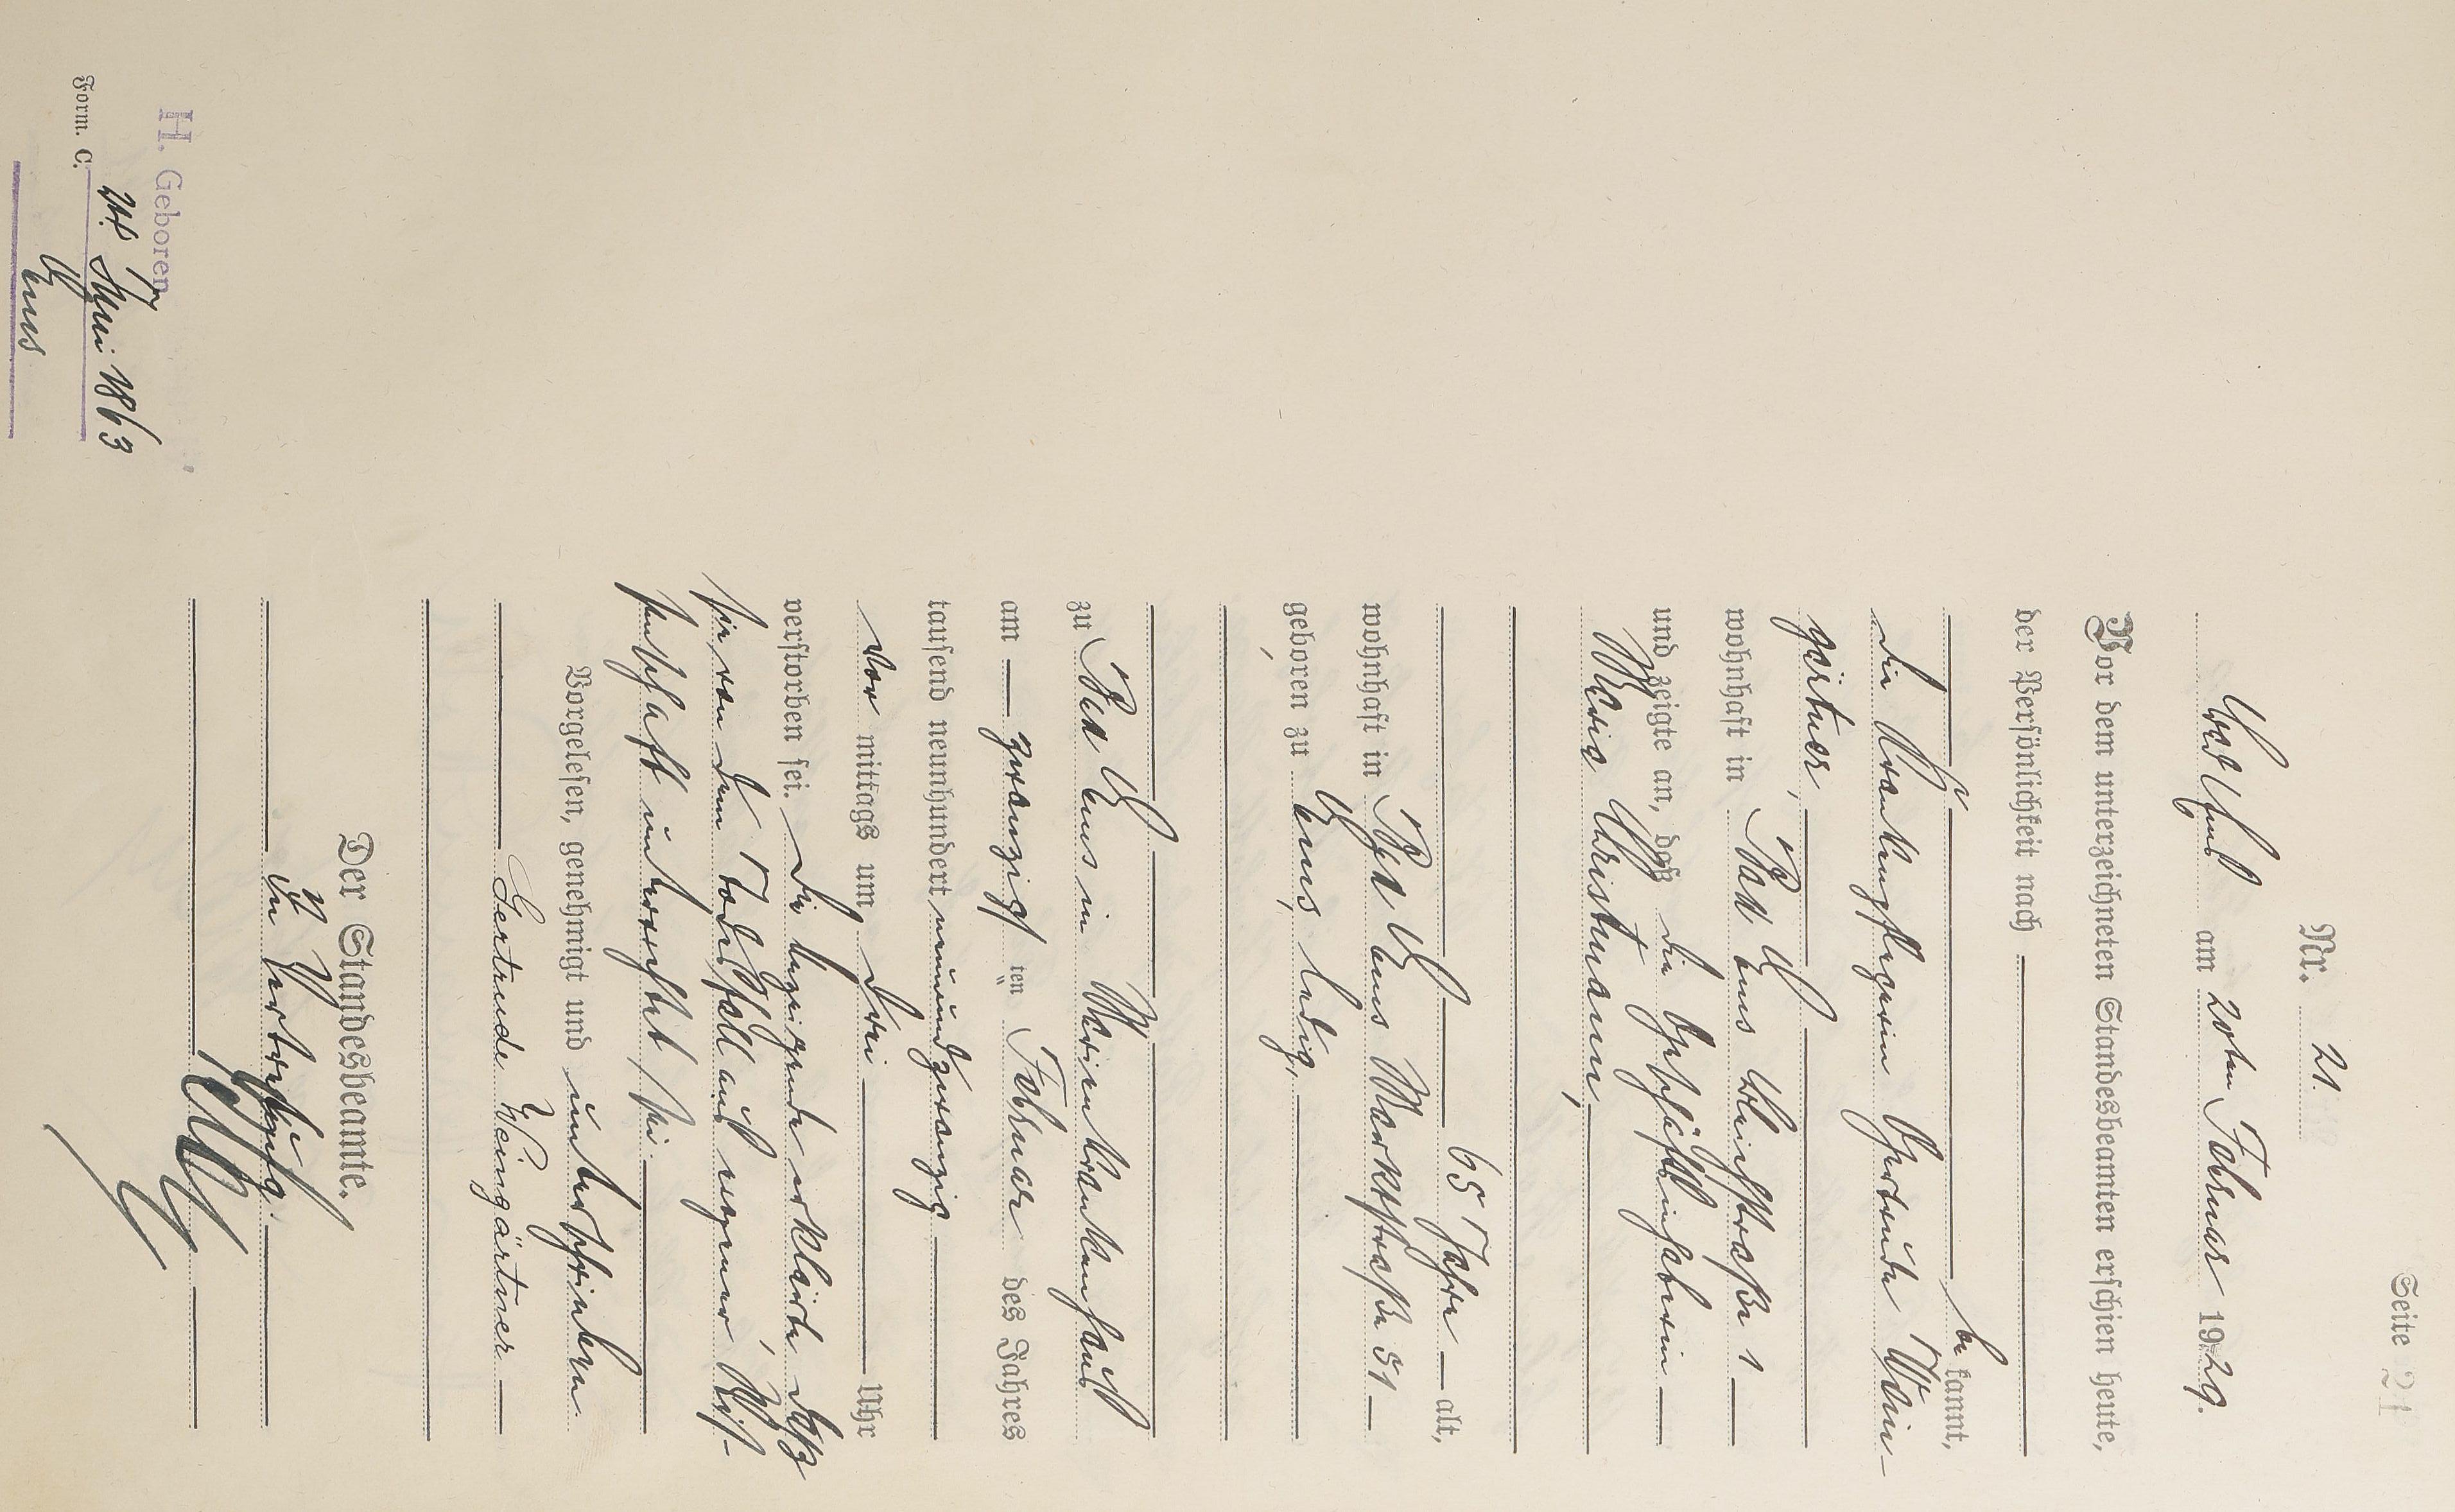 Seite 21
Nr. 21.
Bad Ems am 20ten Februar 1929.
Vor dem unterzeichneten Standesbeamten erschien heute,
der Persönlichkeit nach
be kannt,
die Krankenpflegerin Gertrude Wein-
gärtner,
wohnhaft in Bad Ems Bleichstraße 1
und zeigte an, daß die Geschäftsinhaberin
Maria Christmann,
65 Jahre alt,
wohnhaft in Bad Ems Marktstraße 51
geboren zu Ems, ledig,
zu Bad Ems im Marienkrankenhaus
am zwanzigsten Februar des Jahres
tausend neunhundert neunundzwanzig
vor mittags um drei Uhr
verstorben sei. Die Anzeigende erklärte, daß
sie von dem Todesfall aus eigener Wis-
senschaft unterrichtet sei.
Vorgelesen, genehmigt und unterschrieben.
Gertrude Weingärtner
Der Standesbeamte.
In Vertretung.
H. Geboren
Juni 1863
Ems
Form. C.